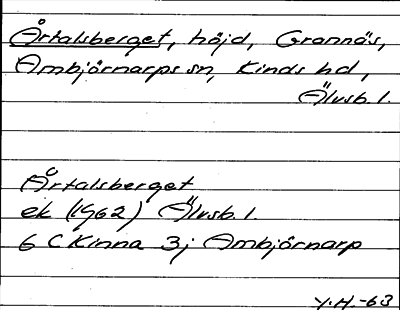 Årtalsberget, höjd, Grannäs,
Ambjörnarps sn, Kinds hd,
Älvsb. l.
Årtalsberget
ek (1962) Älvsb. l.
6 C Kinna 3j Ambjörnarp
Y.H.-63